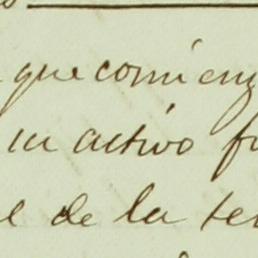 que comienz
su activo f
l de la te